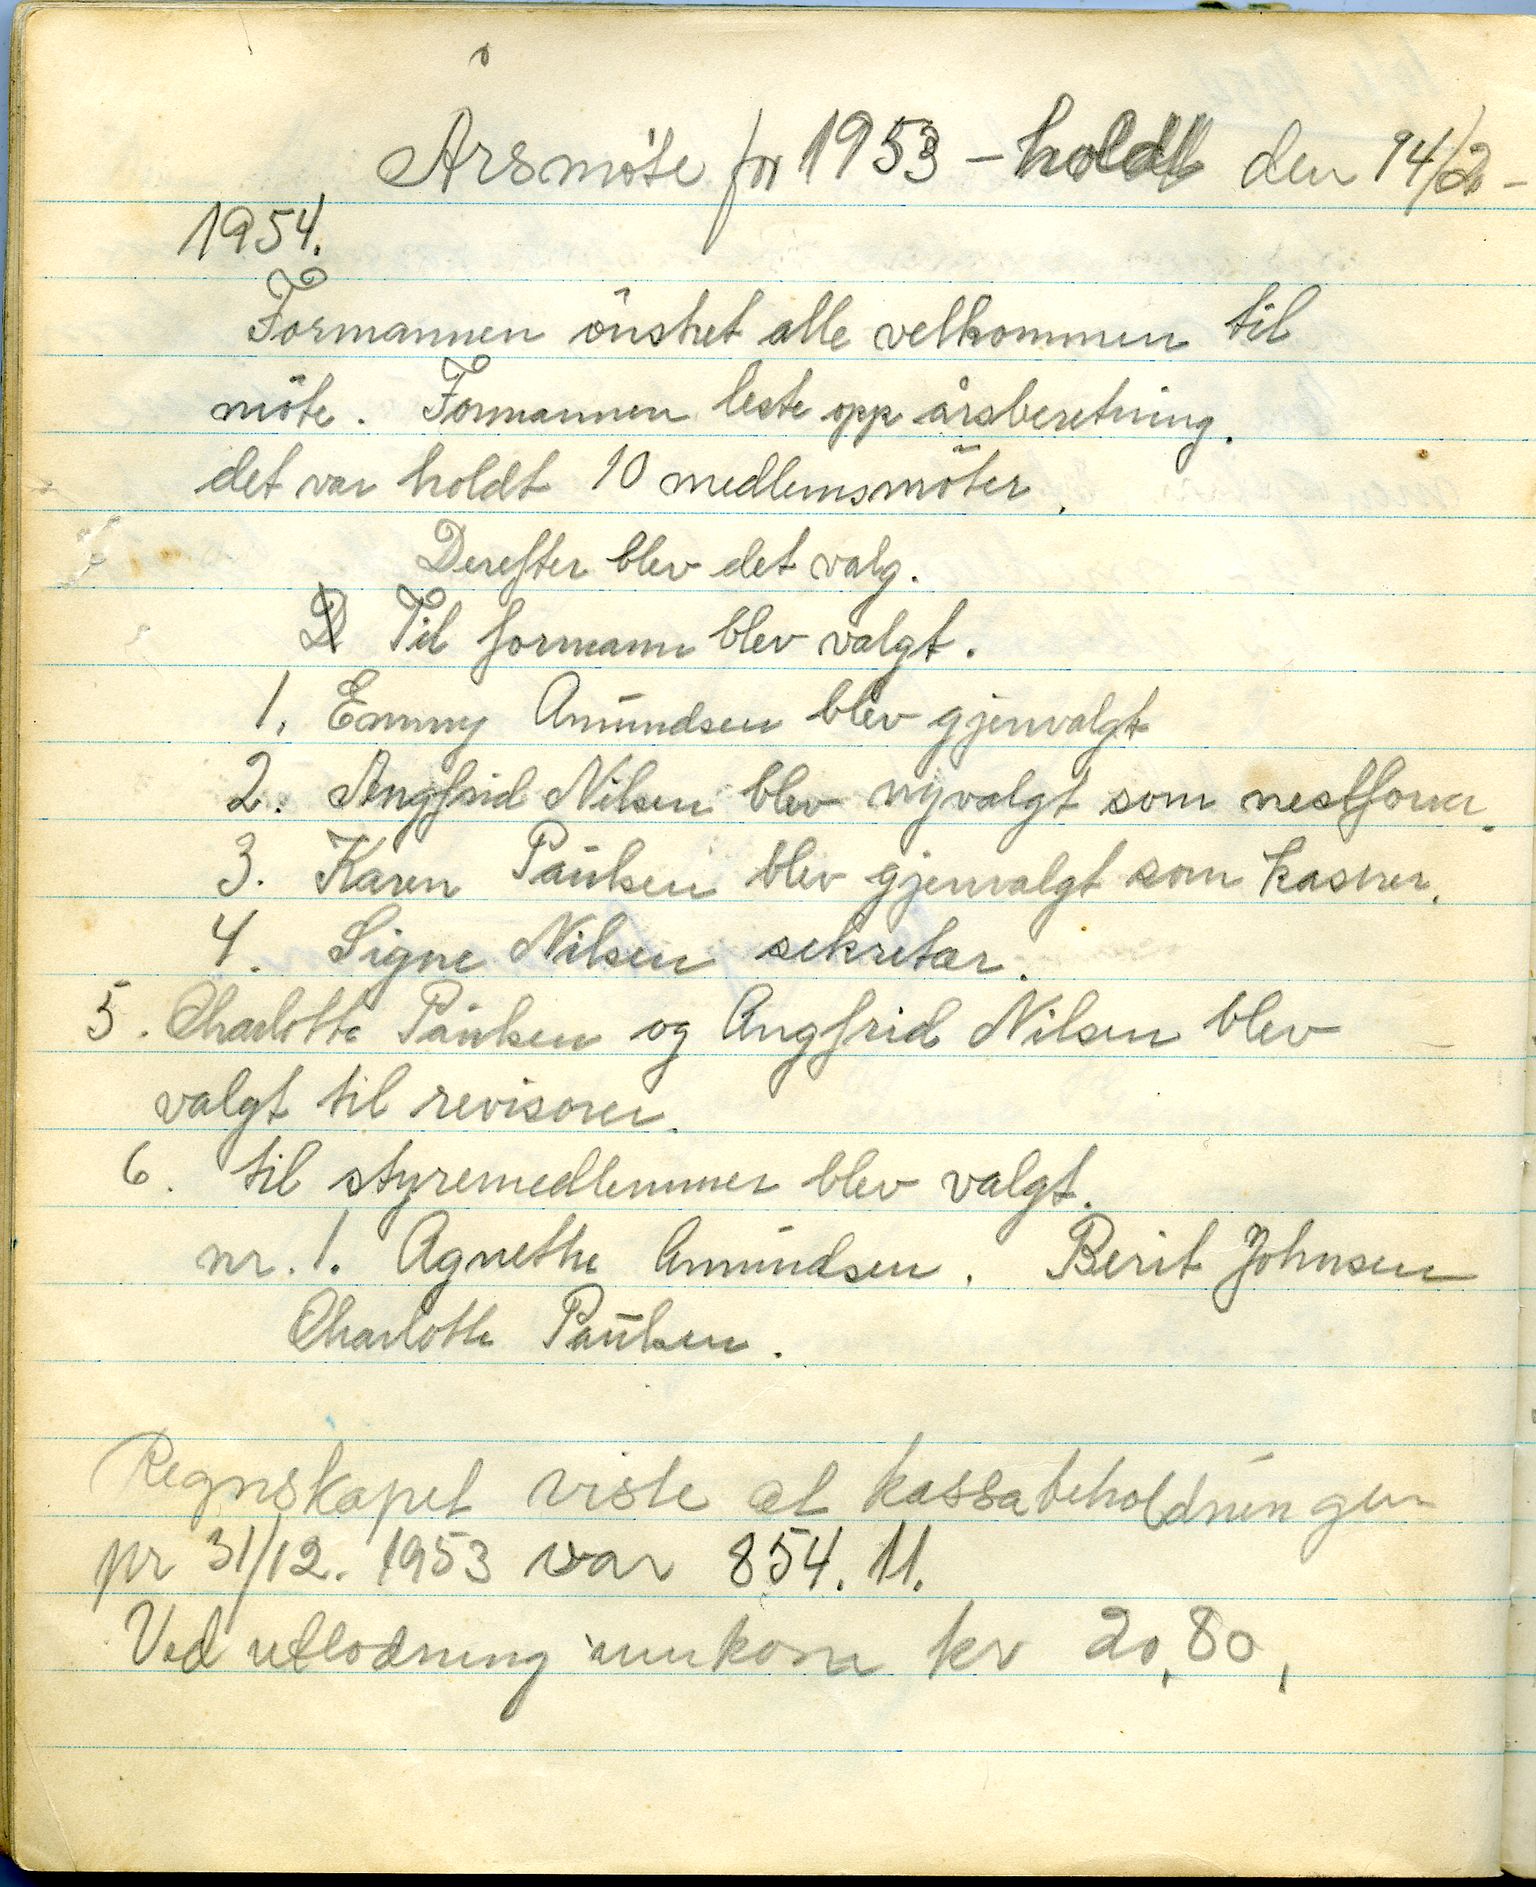 Årsmöte for 1953 - holdt den 14/2 -
1954.
Formannen önsket alle velkommen til
möte. Formannen leste opp årsberetning.
det var holdt 10 medlemsmöter.
Derefter blev det valg.
D Til formann blev valgt.
1. Emmy Amundsen blev gjenvalgt
2. Angfrid Nilsen blev nyvalgt som nestform.
3. Karen Paulsen blev gjenvalgt som kasner.
4. Signe Nilsen sekretær.
5. Charlotte Paulsen og Angfrid Nilsen blev
valgt til revisorer.
6. til styremedlemmer blev valgt.
nr. 1. Agnethe Amundsen. Berit Johnsen
Charlotte Paulsen.
Regnskapet viste at kassabeholdningen
pr 31/12. 1953 var 854.11.
Ved utlodning innkom kr 20,80,